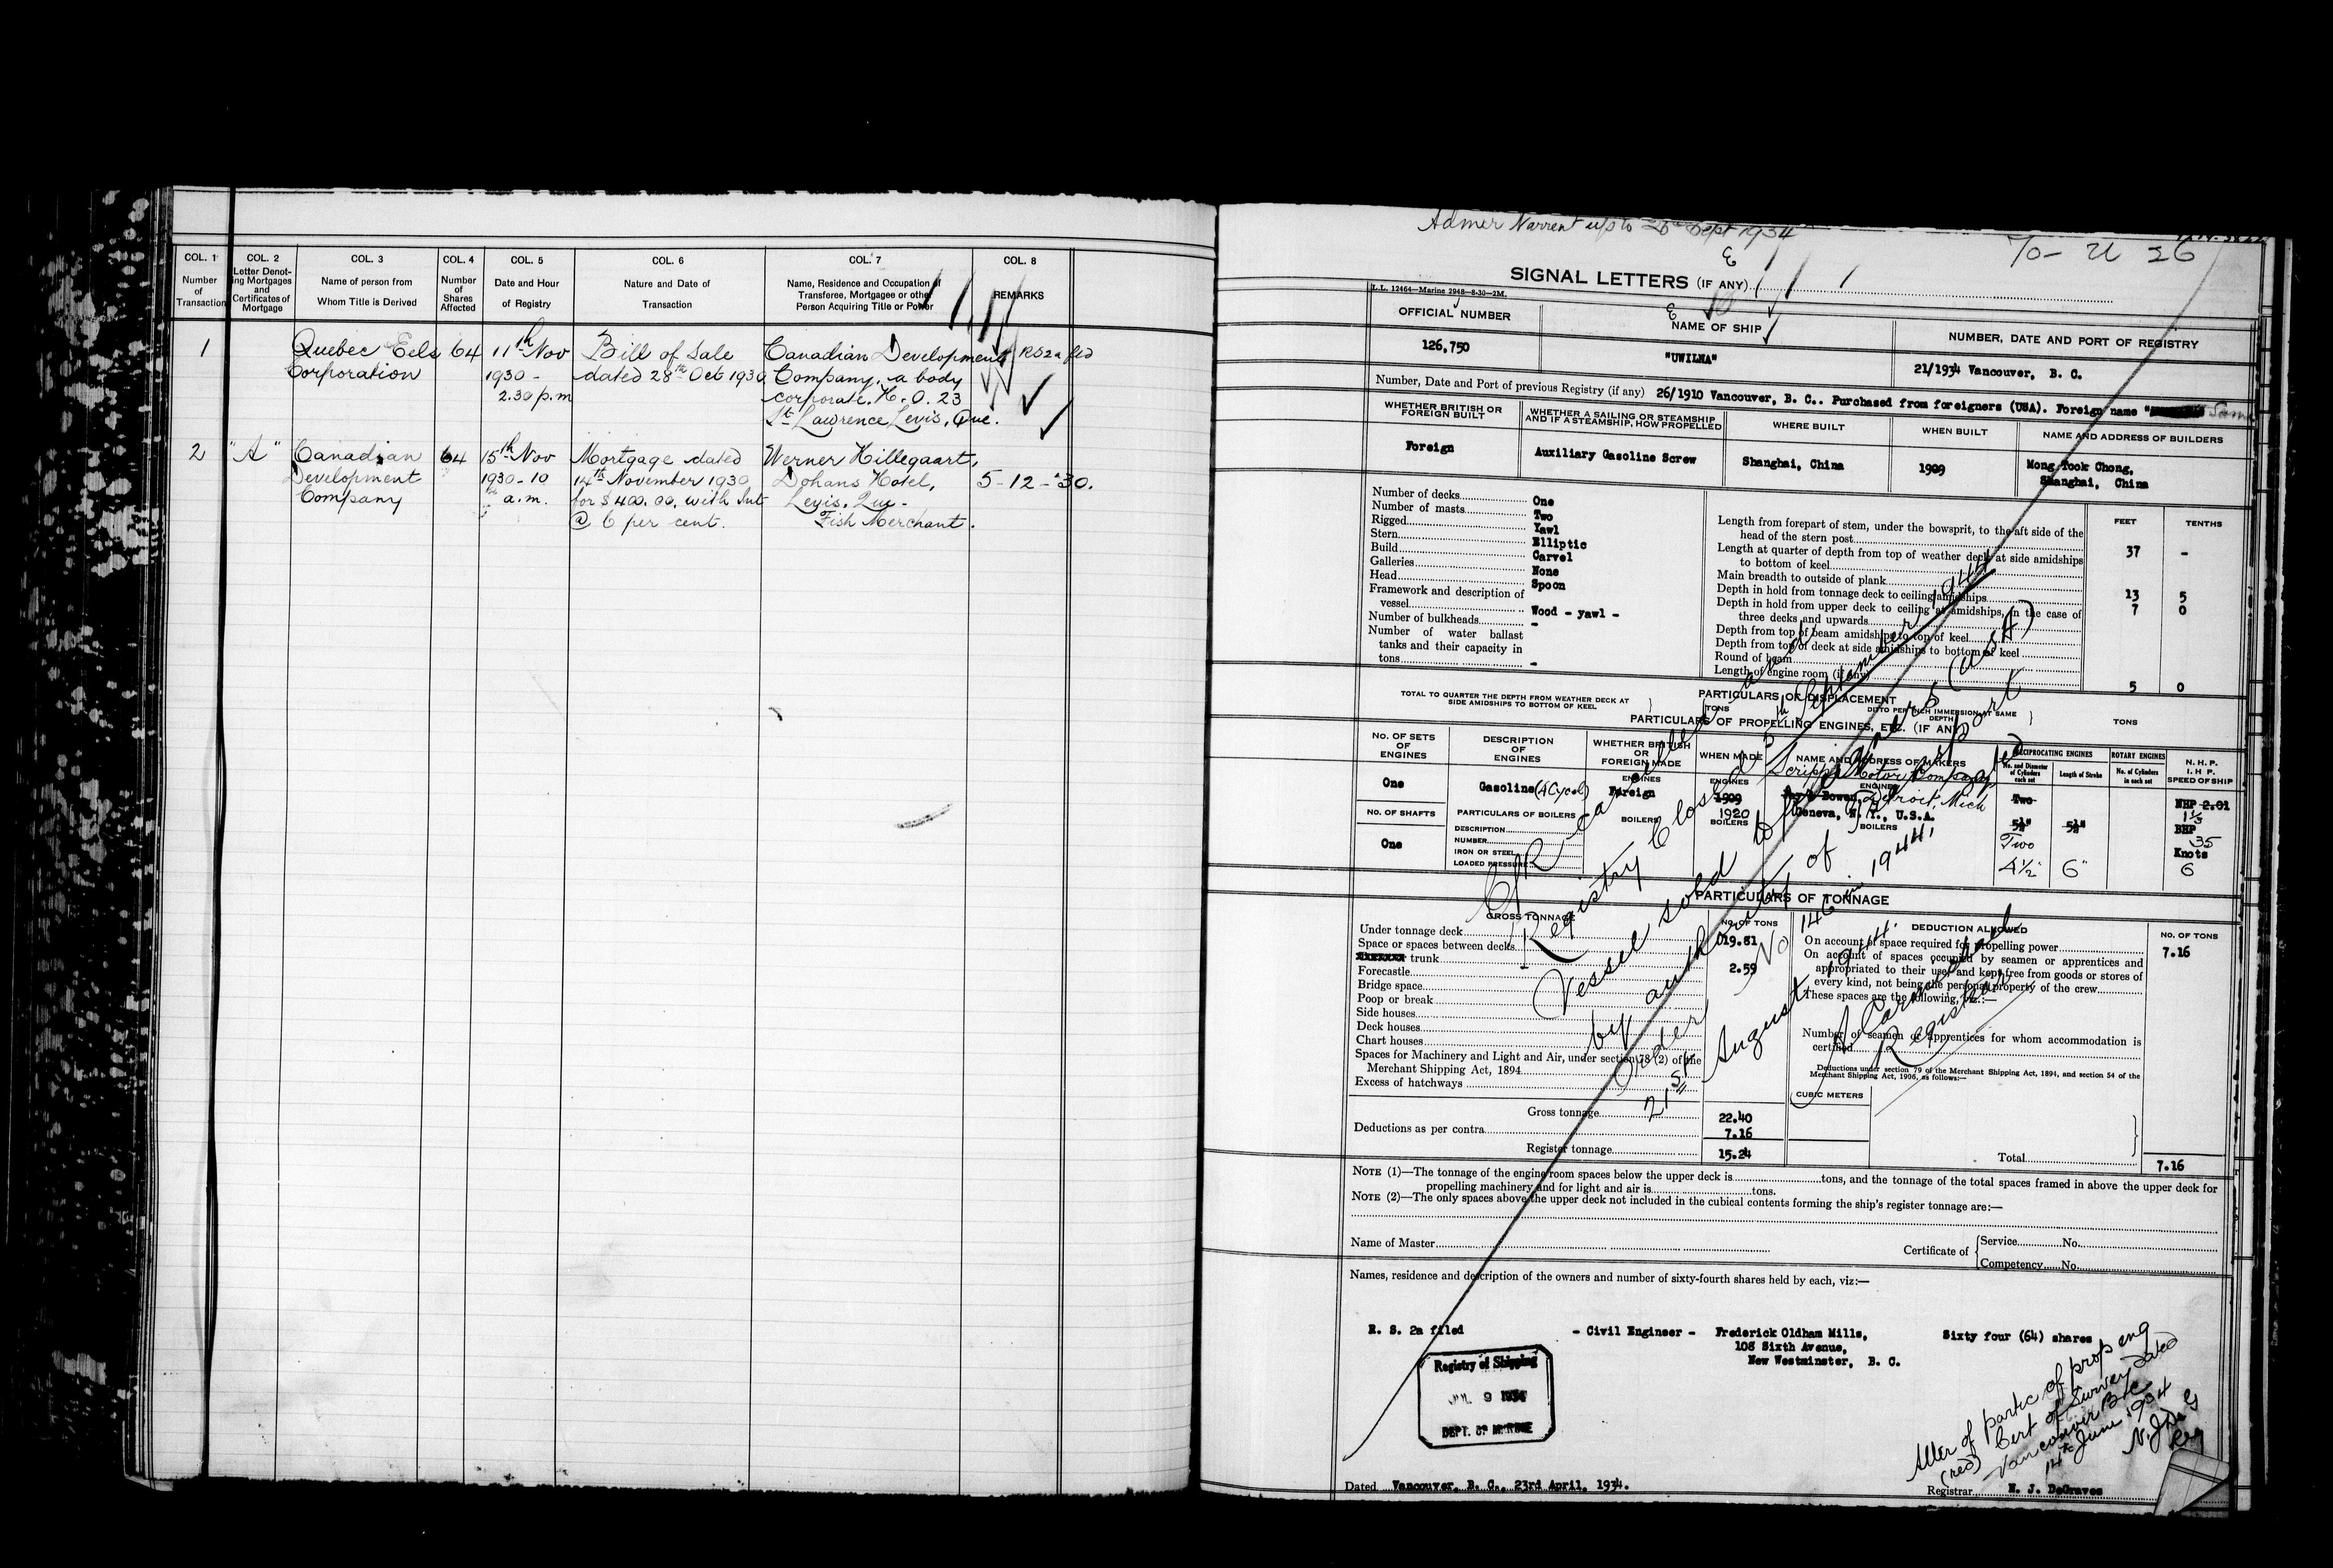 COL. 1
Number
of
Transaction
COL. 2
Letter Denot-
ing Mortgages
and
Certificates of
Mortgage
COL. 3
Name of person from
Whom Title is Derived
COL. 4
Number
of
Shares
Affected
COL. 5
Date and Hour
of Registry
COL. 6
Nature and Date of
Transaction
COL. 7
Name, Residence and Occupation of
Transferee, Mortgagee or other
Person Acquiring Title or Power
COL. 8
REMARKS
1
Quebec Eels
Corporation
64
11th Nov
1930 -
2.30 p.m
Bill of Sale
dated 28th Oct 1930
Canadian Development
Company, a body
corporate. H.O. 23
St Lawrence Levis, Que.
RS2a fld
2
"A"
Canadian
Development
Company
64
15th Nov
1930 - 10
a.m.
Mortgage dated
14th November 1930
for $400.00. with Int
@ 6 per cent.
Werner Hillegaart,
Dohans Hotel,
Levis, Que -
Fish Merchant.
5-12-'30.
up to Sept 1934
To- U 26
SIGNAL LETTERS (IF ANY)
L.L. 12464—Marine 2948—8-30—2M.
OFFICIAL NUMBER
126,750
NAME OF SHIP
"UWILNA"
NUMBER, DATE AND PORT OF REGISTRY
21/1934 Vancouver, B. C.
Number, Date and Port of previous Registry (if any) 26/1910 Vancouver, B. C.. Purchased from foreigners (USA). Foreign name " Same
WHETHER BRITISH OR
FOREIGN BUILT
WHETHER A SAILING OR STEAMSHIP
AND IF A STEAMSHIP, HOW PROPELLED
WHERE BUILT
WHEN BUILT
NAME AND ADDRESS OF BUILDERS
Foreign
Auxiliary Gasoline Screw
Shanghai, China
1909
Mong Took Chong,
Shanghai, China
Number of decks One
Number of masts Two
Rigged Yawl
Stern Elliptic
Build Carvel
Galleries None
Head Spoon
Framework and description of
vessel Wood - yawl -
Number of bulkheads -
Number of water ballast
tanks and their capacity in
tons -
FEET
TENTHS
Length from forepart of stem, under the bowsprit, to the aft side of the
head of the stern post 37 -
Length at quarter of depth from top of weather deck at side amidships
to bottom of keel
Main breadth to outside of plank 13 5
Depth in hold from tonnage deck to ceiling amidships 7 0
Depth in hold from upper deck to ceiling at amidships, in the case of
three decks and upwards
Depth from top of beam amidships to top of keel
Depth from top of deck at side amidships to bottom of keel
Round of beam
Length of engine room (if any) 5 0
PARTICULARS OF DISPLACEMENT
TOTAL TO QUARTER THE DEPTH FROM WEATHER DECK AT
SIDE AMIDSHIPS TO BOTTOM OF KEEL
TONS
DITTO PER INCH IMMERSION AT SAME
DEPTH
TONS
PARTICULARS OF PROPELLING ENGINES, ETC. (IF ANY)
NO. OF SETS
OF
ENGINES
DESCRIPTION
OF
ENGINES
WHETHER BRITISH
OR
FOREIGN MADE
WHEN MADE
NAME AND ADDRESS OF MAKERS
RECIPROCATING ENGINES
No. and Diameter
of Cylinders
each set
Length of Stroke
ROTARY ENGINES
No. of Cylinders
in each set
N. H. P.
I. H. P.
SPEED OF SHIP
One
Gasoline (4 Cycle)
ENGINES
Foreign
ENGINES
1909
1920
Scripps Motor Company
ENGINES
Bowen,
Detroit, Mich
Geneva, N. Y., U.S.A.
Two
5½"
5½"
Two
4½"
6"
NHP 2.01
1⅓
BHP
35
Knots
6
NO. OF SHAFTS
One
PARTICULARS OF BOILERS
DESCRIPTION
NUMBER
IRON OR STEEL
LOADED PRESSURE
BOILERS
BOILERS
BOILERS
PARTICULARS OF TONNAGE
GROSS TONNAGE
NO. OF TONS
Under tonnage deck 19.81
Space or spaces between decks
trunk 2.59
Forecastle
Bridge space
Poop or break
Side houses
Deck houses
Chart houses
Spaces for Machinery and Light and Air, under section 78 (2) of the
Merchant Shipping Act, 1894
Excess of hatchways
Gross tonnage 22.40
Deductions as per contra 7.16
Register tonnage 15.24
DEDUCTION ALLOWED
NO. OF TONS
On account of space required for propelling power 7.16
On account of spaces occupied by seamen or apprentices and
appropriated to their use, and kept free from goods or stores of
every kind, not being the personal property of the crew
These spaces are the following, viz.:—
Number of seamen or apprentices for whom accommodation is
certified
Deductions under section 79 of the Merchant Shipping Act, 1894, and section 54 of the
Merchant Shipping Act, 1906, as follows:—
CUBIC METERS
Total 7.16
Registry Closed 5th September 1944
Vessel sold to foreigners (USA)
by authority of Export
Order No 146
21st August 1944.
A Carmichael
Registrar
NOTE (1)—The tonnage of the engine room spaces below the upper deck is tons, and the tonnage of the total spaces framed in above the upper deck for
propelling machinery and for light and air is tons.
NOTE (2)—The only spaces above the upper deck not included in the cubical contents forming the ship's register tonnage are:—
Name of Master
Certificate of
Service No.
Competency No.
Names, residence and description of the owners and number of sixty-fourth shares held by each, viz:—
R. S. 2a filed
- Civil Engineer -
Frederick Oldham Mills,
108 Sixth Avenue,
New Westminster, B. C.
Sixty four (64) shares
Registry of Shipping
JUL 9 1934
DEPT. OF MARINE
Alter of partic of prop eng
(red) Cert of Survey dated
Vancouver B.C.
14th June 1934
N. J. De G
Reg
Dated Vancouver, B. C., 23rd April, 1934.
Registrar N. J. DeGraves